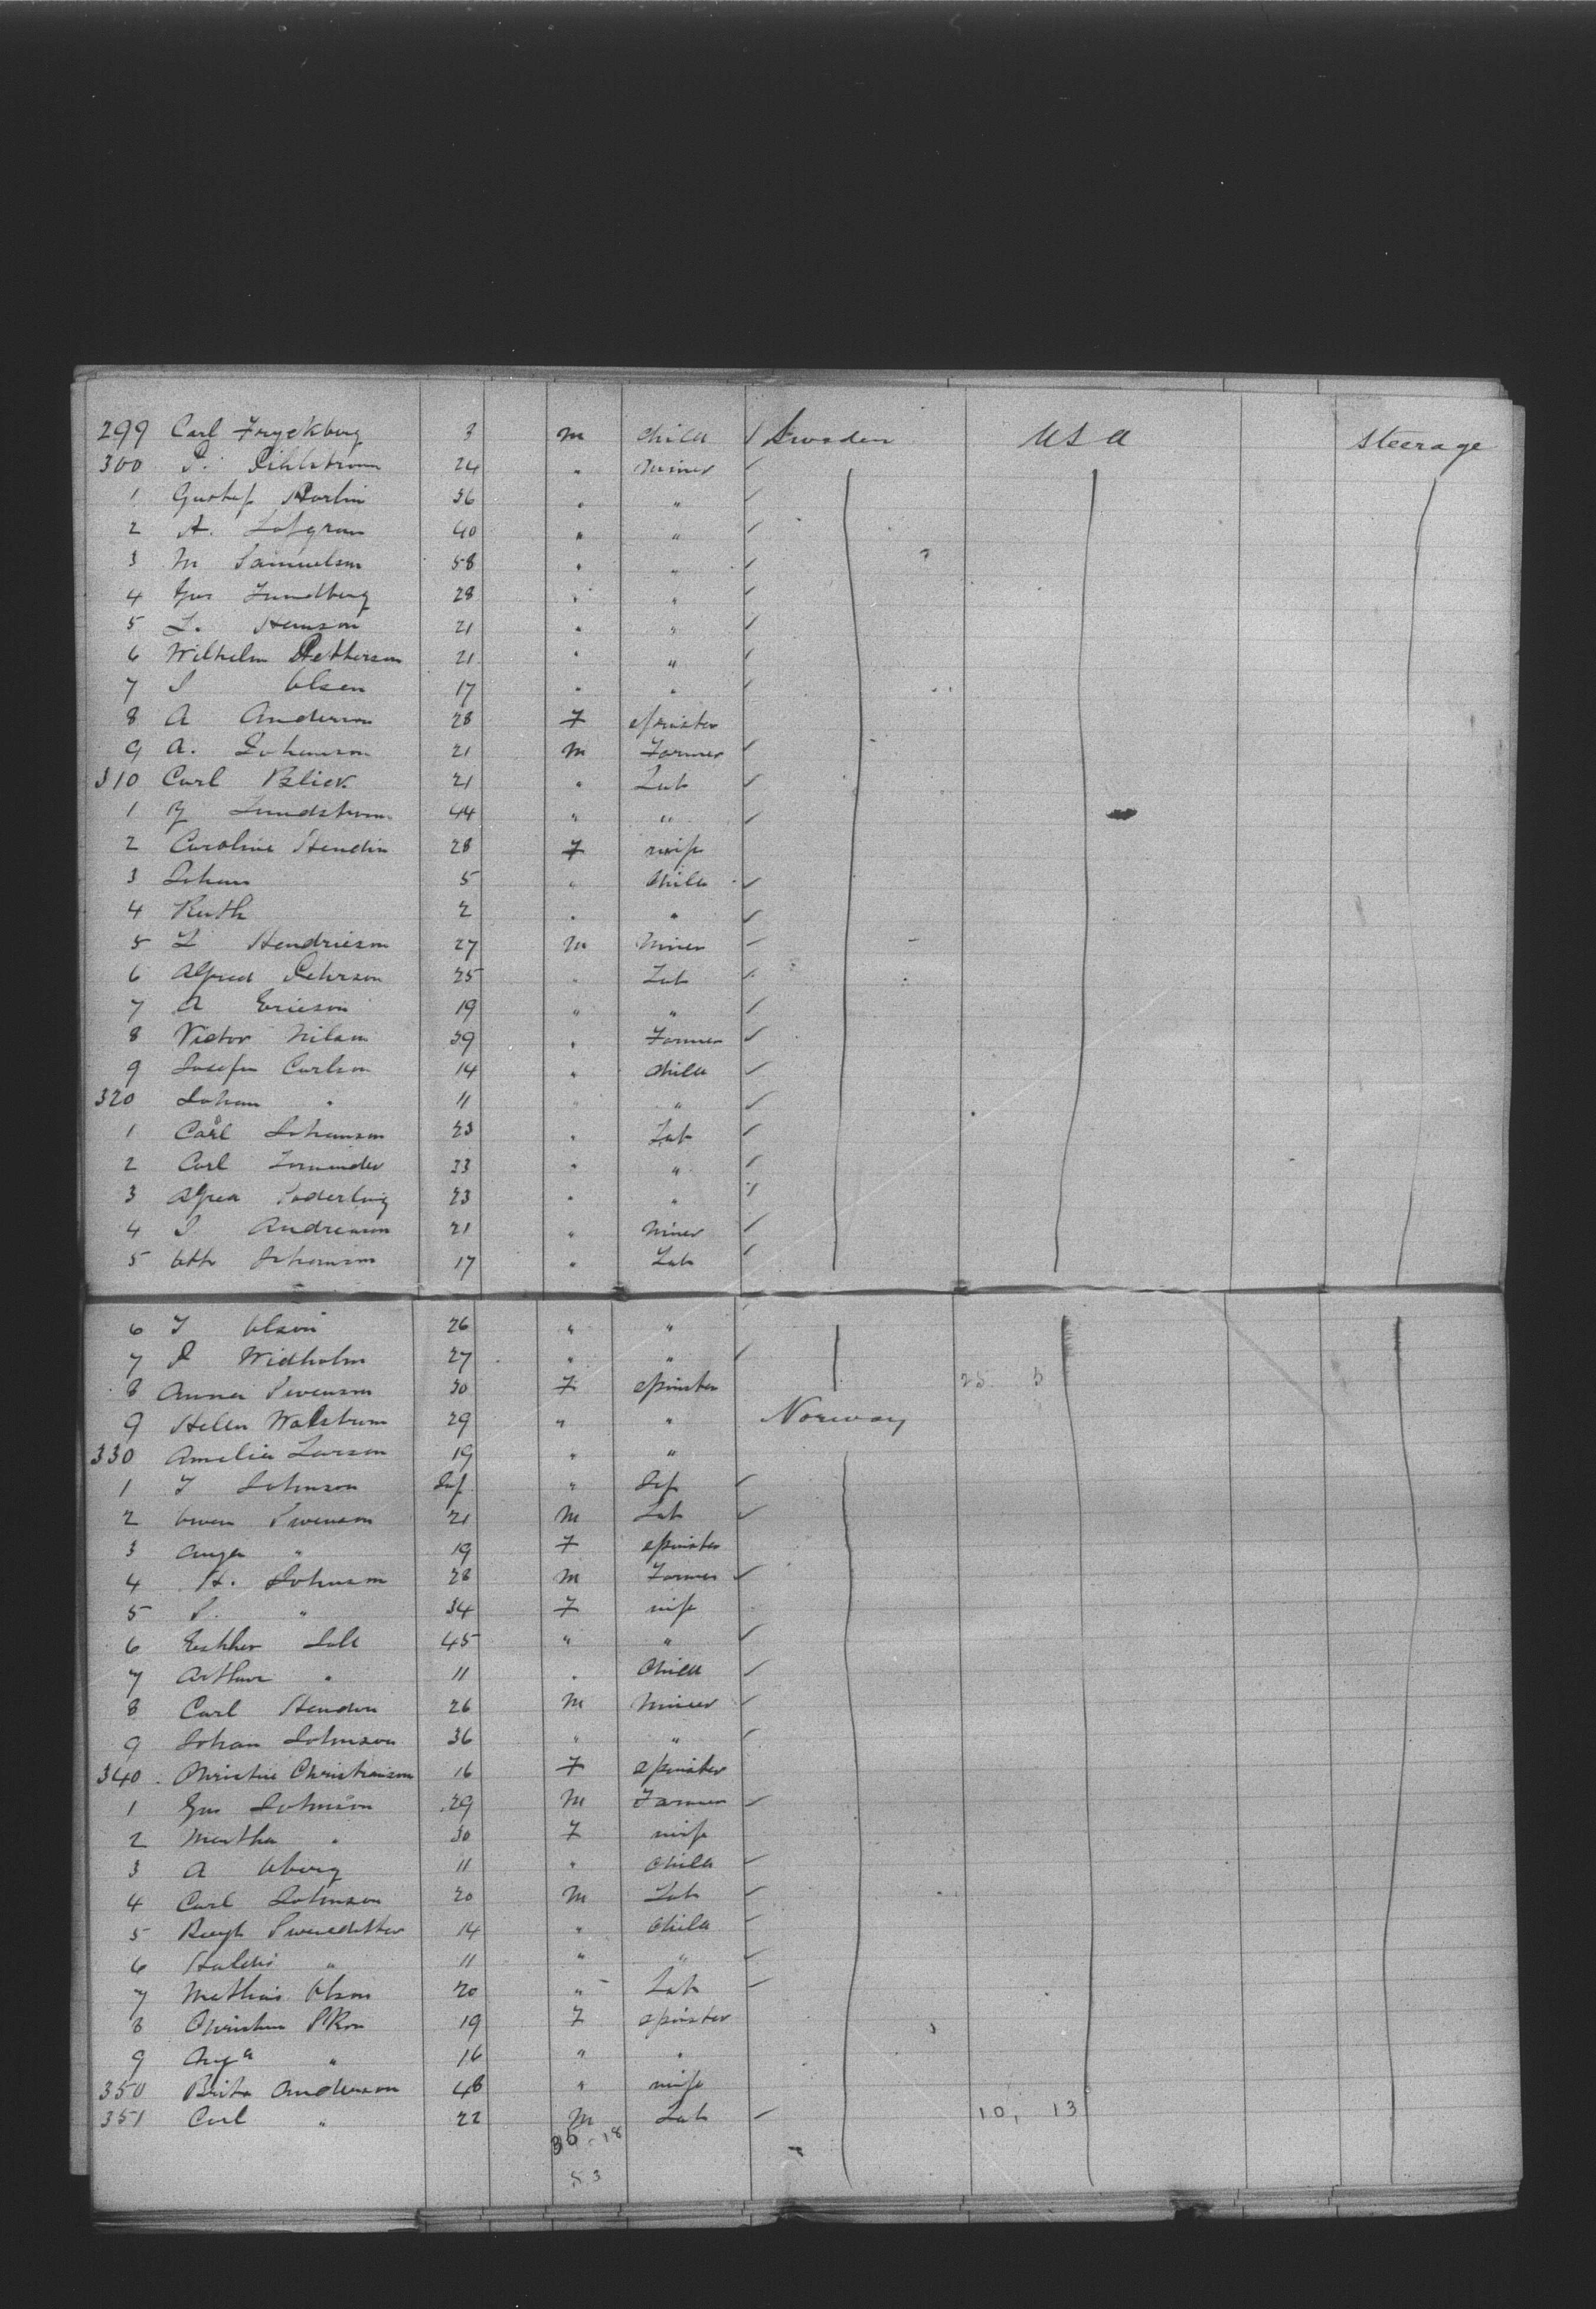 299 Carl Fryckberg 3 m child ✓ Sweden USA Steerage
300 P. Pihlstrom 24 " miner ✓
1 Gustaf Norlin 36 " " ✓
2 A. Lofgren 40 " " ✓
3 M Samuelson 58 " " ✓
4 Gus Lundberg 28 " " ✓
5 L. Hanson 21 " " ✓
6 Wilhelm Petterson 21 " " ✓
7 J Olsen 17 " " ✓
8 A Anderson 28 F spinster
9 A. Johanson 21 m Farmer ✓
310 Carl Blick 21 " Lab ✓
1 Lundstrom 44 " " ✓
2 Caroline Hendin 28 F wife
3 Johan 5 " Child ✓
4 Ruth 2 " " ✓
5 L Hendricson 27 m Miner ✓
6 Alfred Peterson 25 " Lab ✓
7 A Ericson 19 " " ✓
8 Victor Nilson 39 " Farmer ✓
9 Josefin Carlson 14 " Child ✓
320 Johan " 11 " " ✓
1 Carl Johanson 23 " Lab ✓
2 Carl 33 " " ✓
3 Alfred Soderberg 23 " " ✓
4 J Andreason 21 " Miner ✓
5 Otto Johanson 17 " Lab ✓
6 T Olson 26 " "
7 P Widholm 27 " " ✓
8 Anna Swenson 30 F Spinster 25 5
9 Helen Walstrom 29 " " Norway
330 Amelia Larson 19 " "
1 T Johnson Inf " Inf ✓
2 Owen Swenson 21 m Lab ✓
3 Anga " 19 F Spinster
4 H. Johnson 28 m Farmer ✓
5 S. " 34 F wife
6 Esther 45 " " ✓
7 Arthur " 11 " Child ✓
8 Carl Hendin 26 m Miner ✓
9 Johan Johnson 36 " " ✓
340 Christine Christianson 16 F spinster
1 Gus Johnson 29 m Farmer ✓
2 Martha " 30 F wife
3 A Oberg 11 " Child ✓
4 Carl Johnson 20 m Lab ✓
5 14 " Child ✓
6 " 11 " " ✓
7 Mathias Olson 20 " Lab ✓
8 Christine 19 F spinster
9 Anga " 16 " "
350 Brita Anderson 48 " wife
351 Carl " 22 m Lab ✓ 10, 13
36 18
53